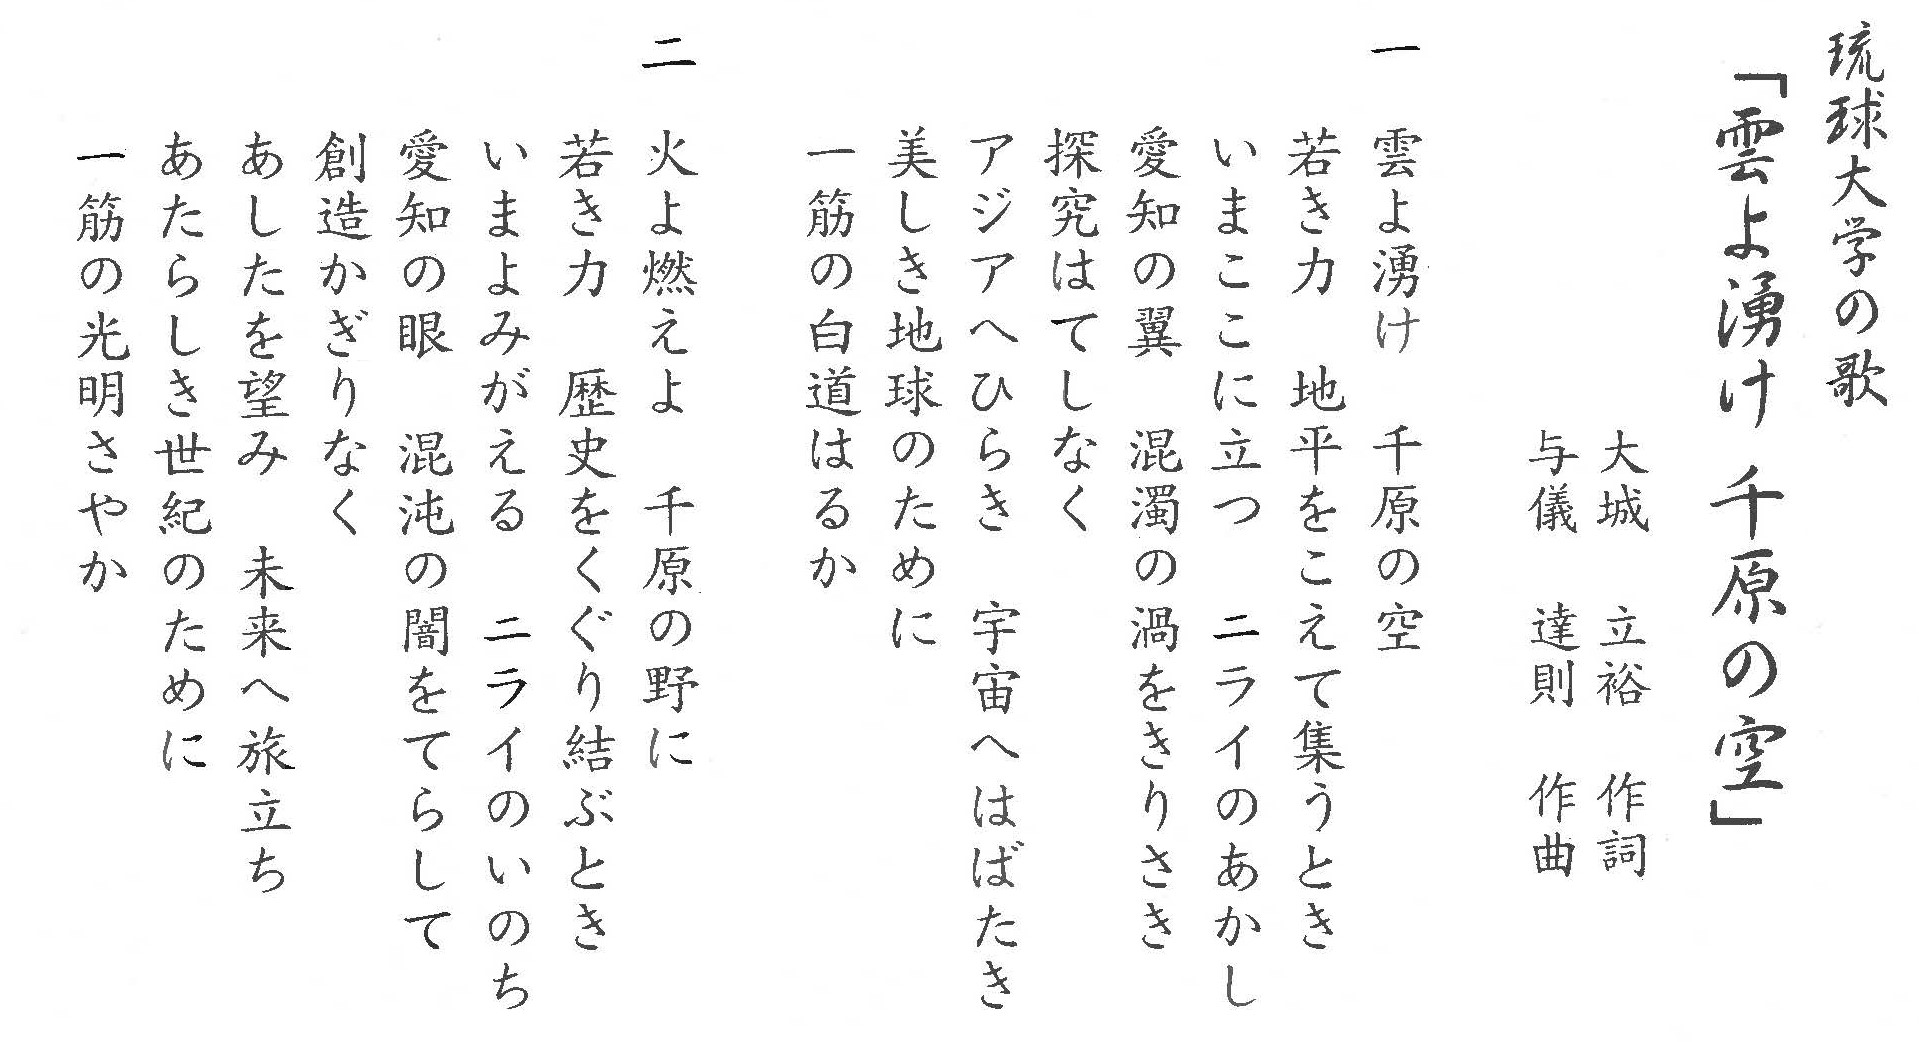 琉球大学の歌
「雲よ湧け 千原の空」
大城　立裕　作詞
与儀　達則　作曲
一
雲よ湧け　千原の空
若き力　地平をこえて集うとき
いまここに立つ　ニライのあかし
愛知の翼　混濁の渦をきりさき
探究はてしなく
アジアへひらき　宇宙へはばたき
美しき地球のために
一筋の白道はるか
二
火よ燃えよ　千原の野に
若き力　歴史をくぐり結ぶとき
いまよみがえる　ニライのいのち
愛知の眼　混沌の闇をてらして
創造かぎりなく
あしたを望み　未来へ旅立ち
あたらしき世紀のために
一筋の光明さやか